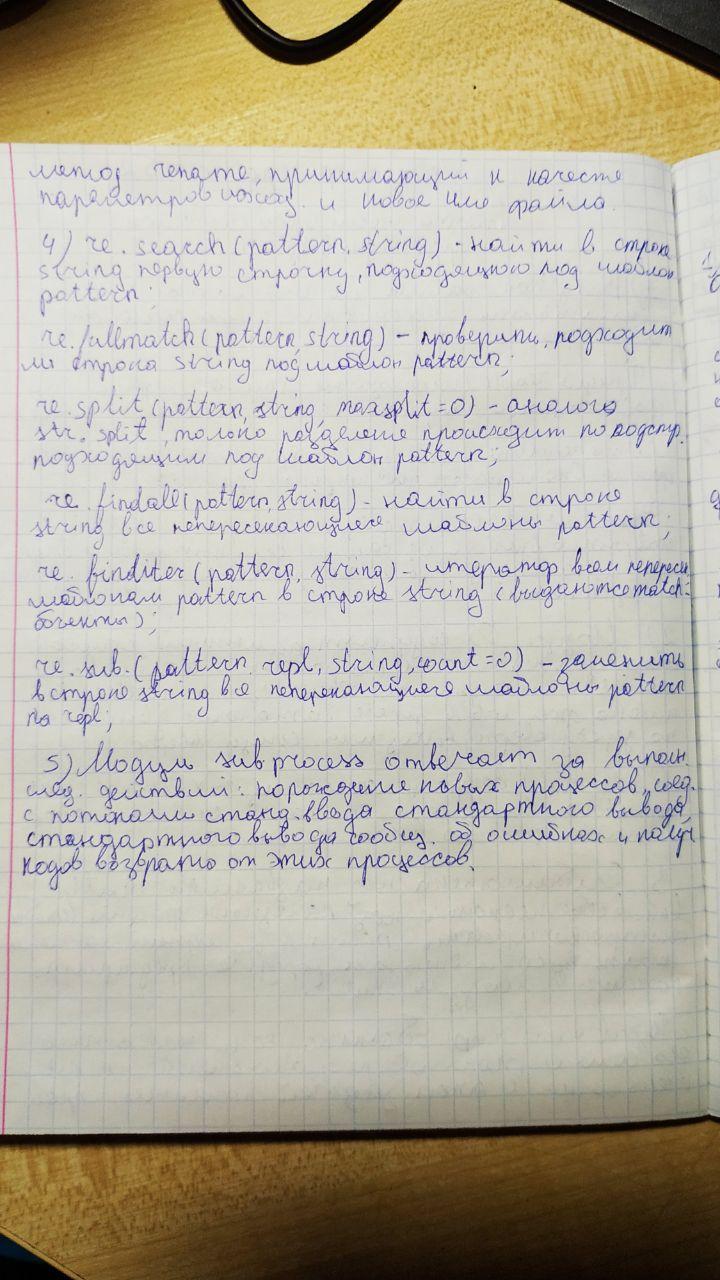 метод rename, принимающий в качесте
параметров исход. и новое имя файла.
4) re. search (pattern, string) - найти в строке
string первую строчку, подходящую под шаблон
pattern;
re. fullmatch (pattern, string) - проверить, подходит
ли строка string под шаблон pattern;
re. split (pattern, string, maxsplit = 0) - аналог
str. split, только разделение происходит по подстр.
подходящим под шаблон pattern;
re. findall (pattern, string) - найти в строке
string все непересекающиеся шаблоны pattern;
re. finditer (pattern, string) - итератор всем непересек
шаблонам pattern в строке string (выдаются match-
)
re. sub. (pattern, repl, string, count = 0) - заменить
в строке string все шаблоны pattern
на repl;
5) Модуль subprocess отвечает за выполн.
след. действий: порождение новых процессов, соед.
с потоками станд. ввода, стандартного вывода,
стандартного вывода сообщ. об ошибках и получ
кодов возврата от этих процессов.